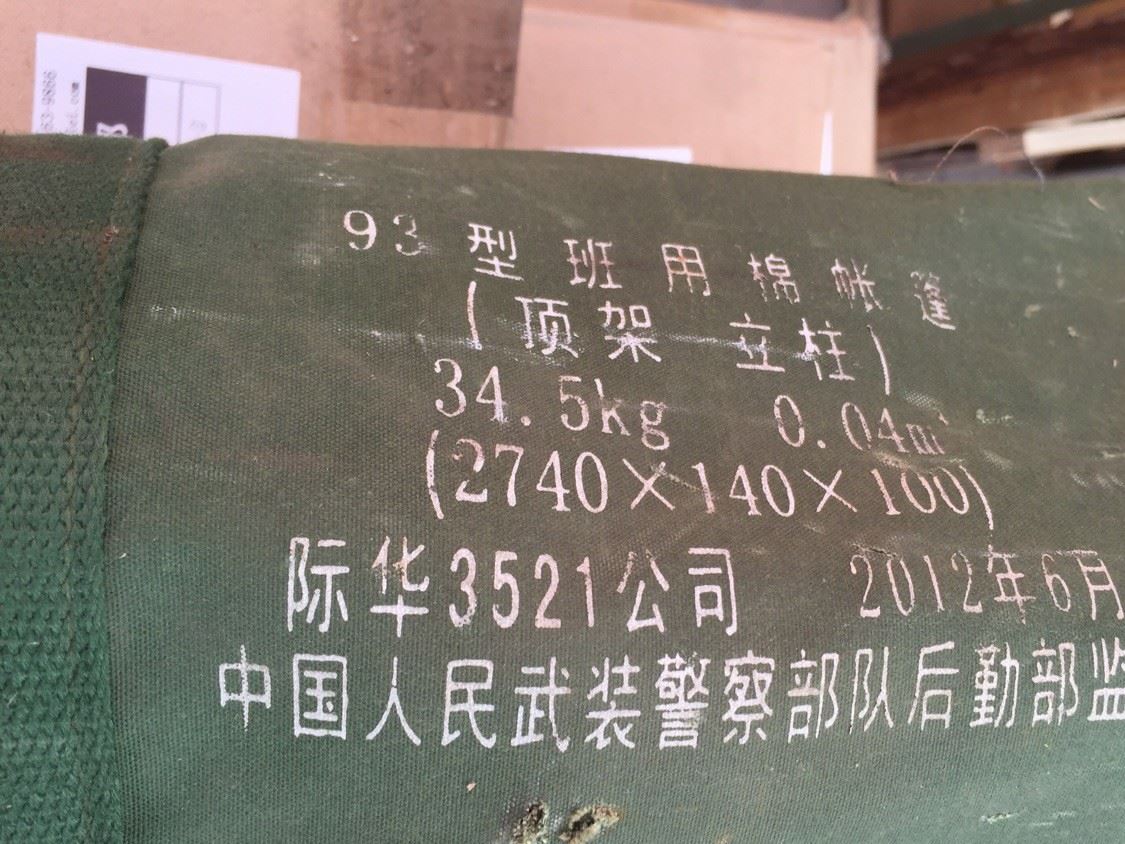 93型班用棉帐篷
(顶架 立柱)
34.5kg 0.04m³
(2740×140×100)
际华3521公司 2012年6月
中国人民武装警察部队后勤部监